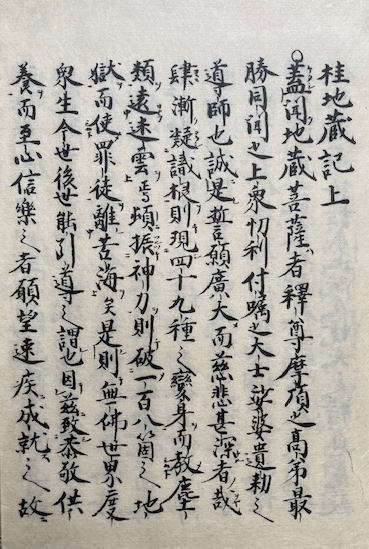 桂地蔵記上
蓋聞地蔵菩薩者釋尊摩頂之高第最
勝同聞之上衆忉利付囑之大士娑婆遺勅之
導師也誠是誓願廣大而慈悲甚深者哉
肆漸凝識根則現四十九種之變身而教塵
類遠迷雲焉頻振神力則破一百八箇之地
獄而使罪徒離苦海矣是則無佛世界度
衆生今世後世能引導之謂也因茲致恭敬供
養而至心信樂之者願望速疾成就之故